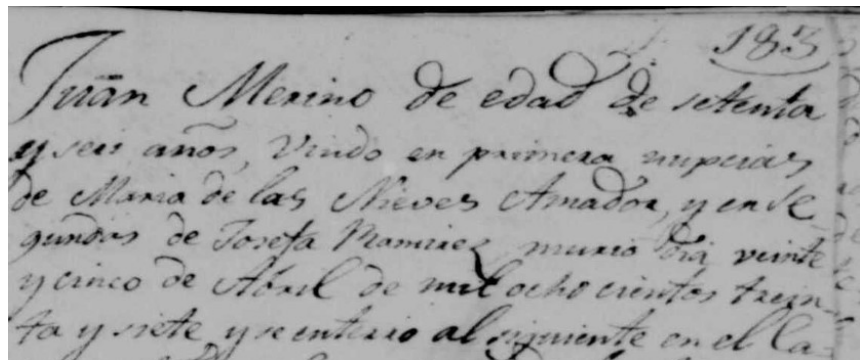 183
Juan Merino de edad de setenta
y seis años, Viudo en primera nupcias
de Maria de las Nieves Amador, y en se
gundas de Josefa Ramirez murio dia veinte
y cinco de Abril de mil ochocientos trein-
ta y siete y se enterro al siguiente en el Ca-